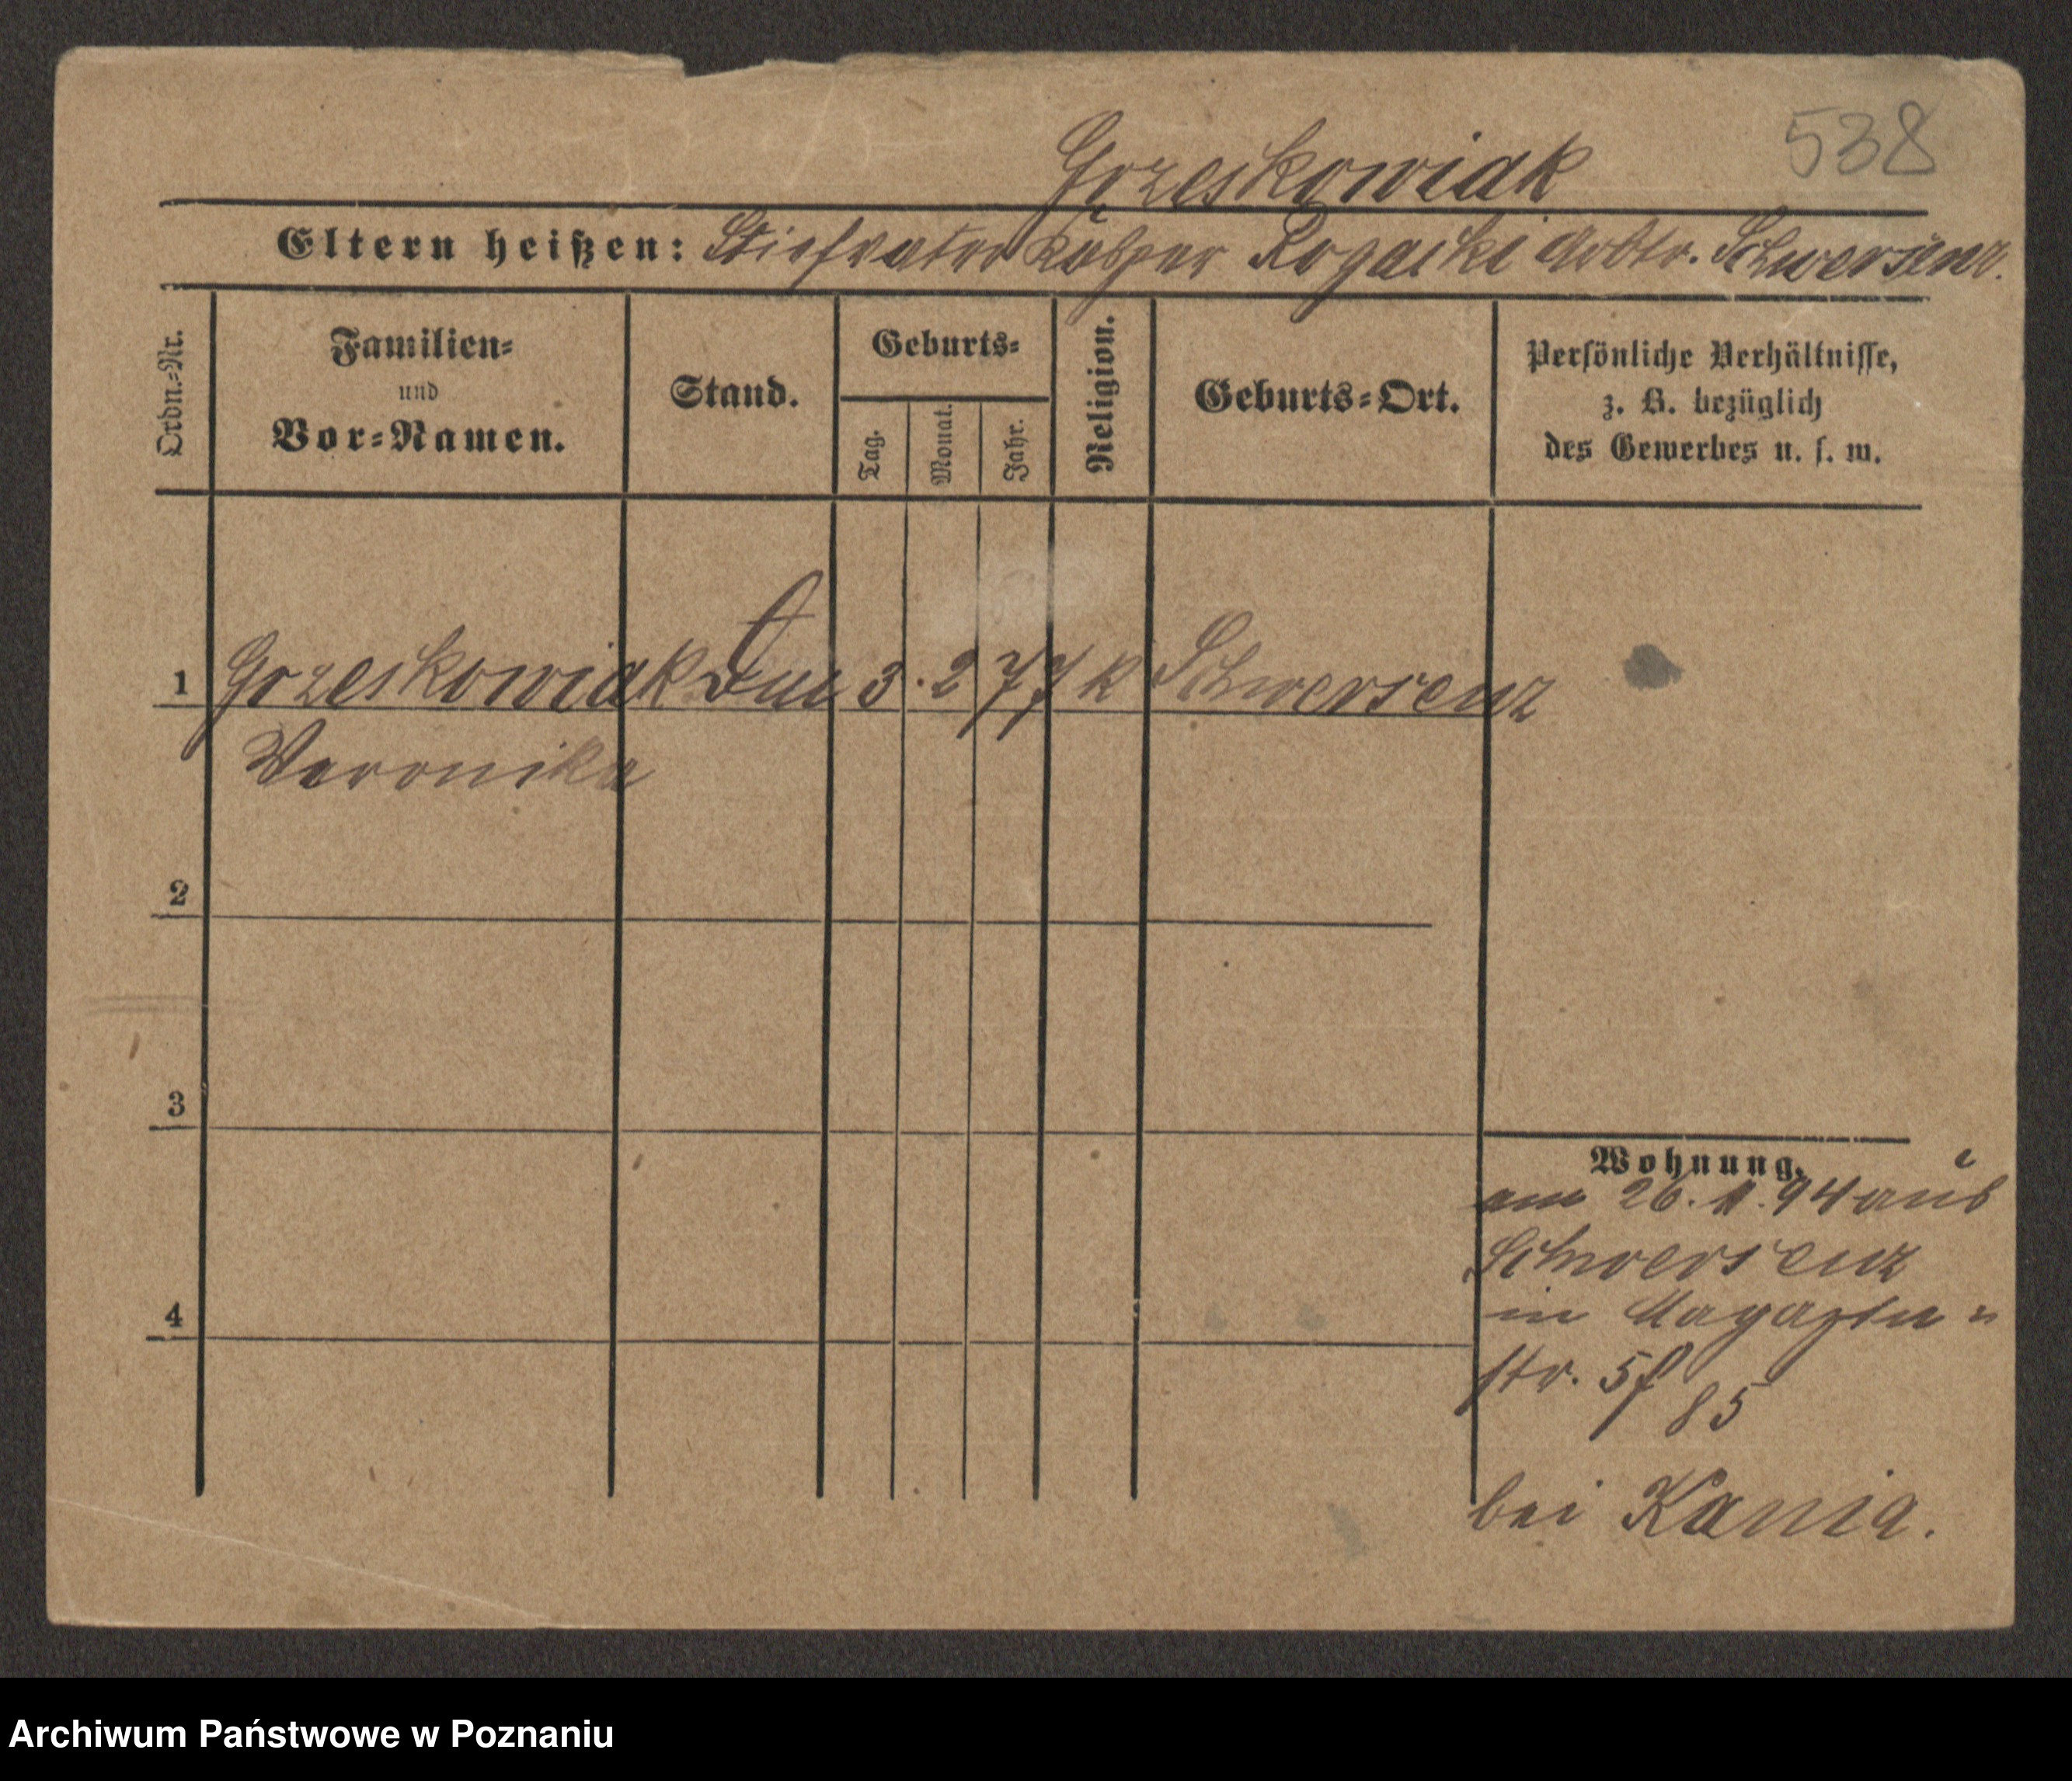 538
Grzeskowiak
Eltern heißen: Stiefvater Kasper Rogacki Arbtr. Schwersenz.
Ordn.-Nr.
Familien-
und
Vor-Namen.
Stand.
Geburts-
Tag.
Monat.
Jahr.
Religion.
Geburts-Ort.
Persönliche Verhältnisse,
z. B. bezüglich
des Gewerbes u. s. w.
1 Grzeskowiak 3. 2 77 k Schwersenz
Veronika
2
3
4
Wohnung.
am 26. 94 aus
Schwersenz
in Magazin-
str.
85
bei Kania.
Archiwum Państwowe w Poznaniu